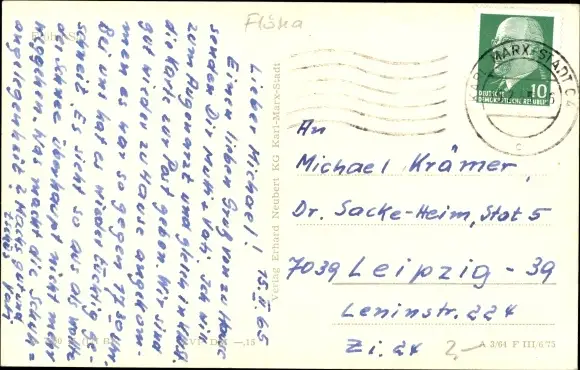 Flöha
Lieber Michael! 15. II 65
Einen lieben Gruß von zu Haus
senden Dir Mutti + Vati. Ich will
zum Augenarzt und gleich in
die Karte zur Post geben. Wir sind
gut wieder zu Hause angekom-
men es war so gegen 17.30 Uhr.
Bei uns hat es wieder tüchtig ge-
schneit. Es sieht so aus als wollte
die Sonne überhaupt nicht mehr
weggehen. Was macht die Schuh=
angelegenheit?
Vati.
Verlag Erhard Neubert KG Karl-Marx-Stadt
KARL-MARX-STADT C2
DEUTSCHE
DEMOKRATISCHE REPUBLIK
10
An
Michael Krämer,
Dr. Sacke-Heim, Stat 5
7039 Leipzig - 39
Leninstr. 224
Zi. 24
2,-
A 3/64 F III/6/75